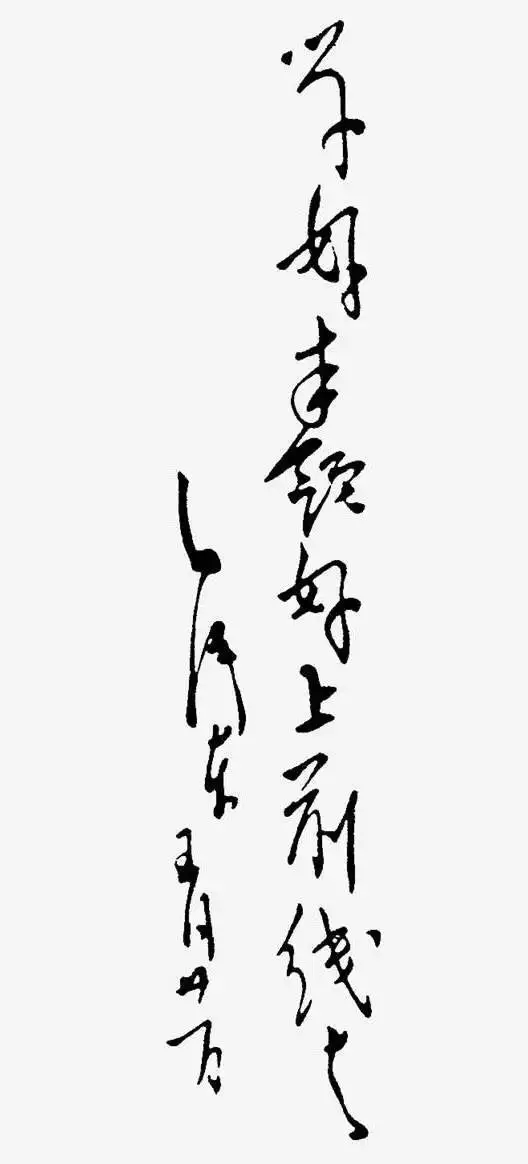 学好本领好上前线去
毛泽东
五月廿一日